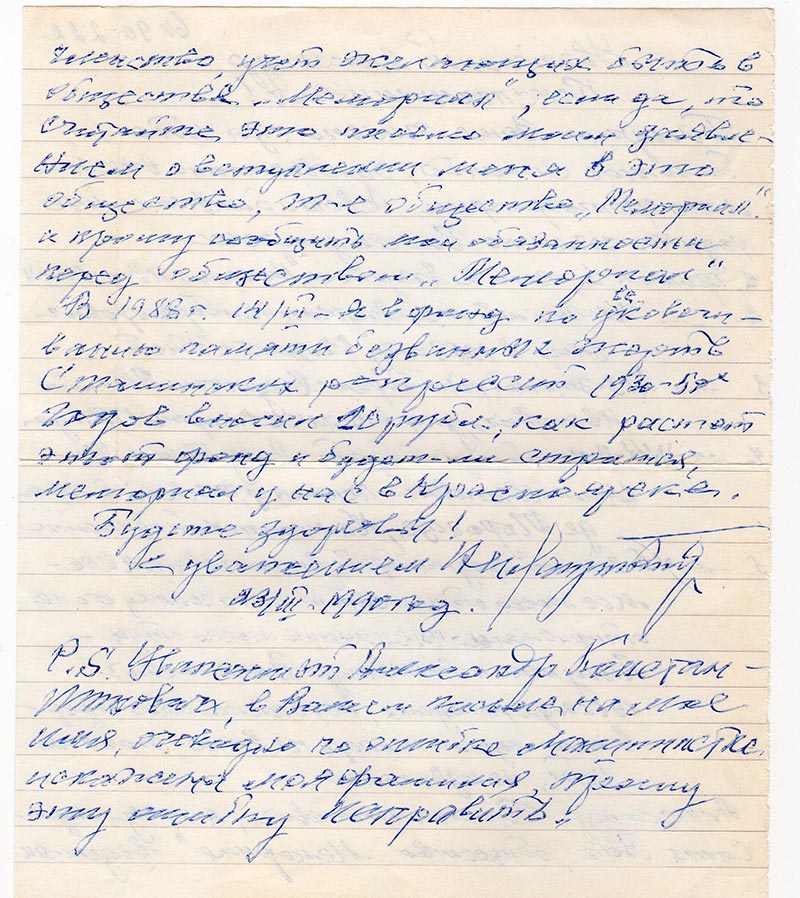 членство, учет желающих быть в
обществе „Мемориал", если да, то
считайте это письмо моим заявле-
нием о вступлении меня в это
общество, т-е общество „Мемориал".
и прошу сообщить мои обязанности
перед обществом „Мемориал"
В 1988 г. 14/VI - я в фонд по увековечи-
ванию памяти безвинных жертв
Сталинских репрессий 1930-50х
годов вносил 20 рубл., как растет
этот фонд и будет-ли строится,
мемориал у нас в Красноярске.
Будьте здоровы!
С уважением
23/III-1990 год.
P.S. Уважаемый Александр Констан-
тинович, в Вашем письме на мое
имя, очевидно по ошибке машинистки
искажена моя фамилия, прошу
эту ошибку исправить.